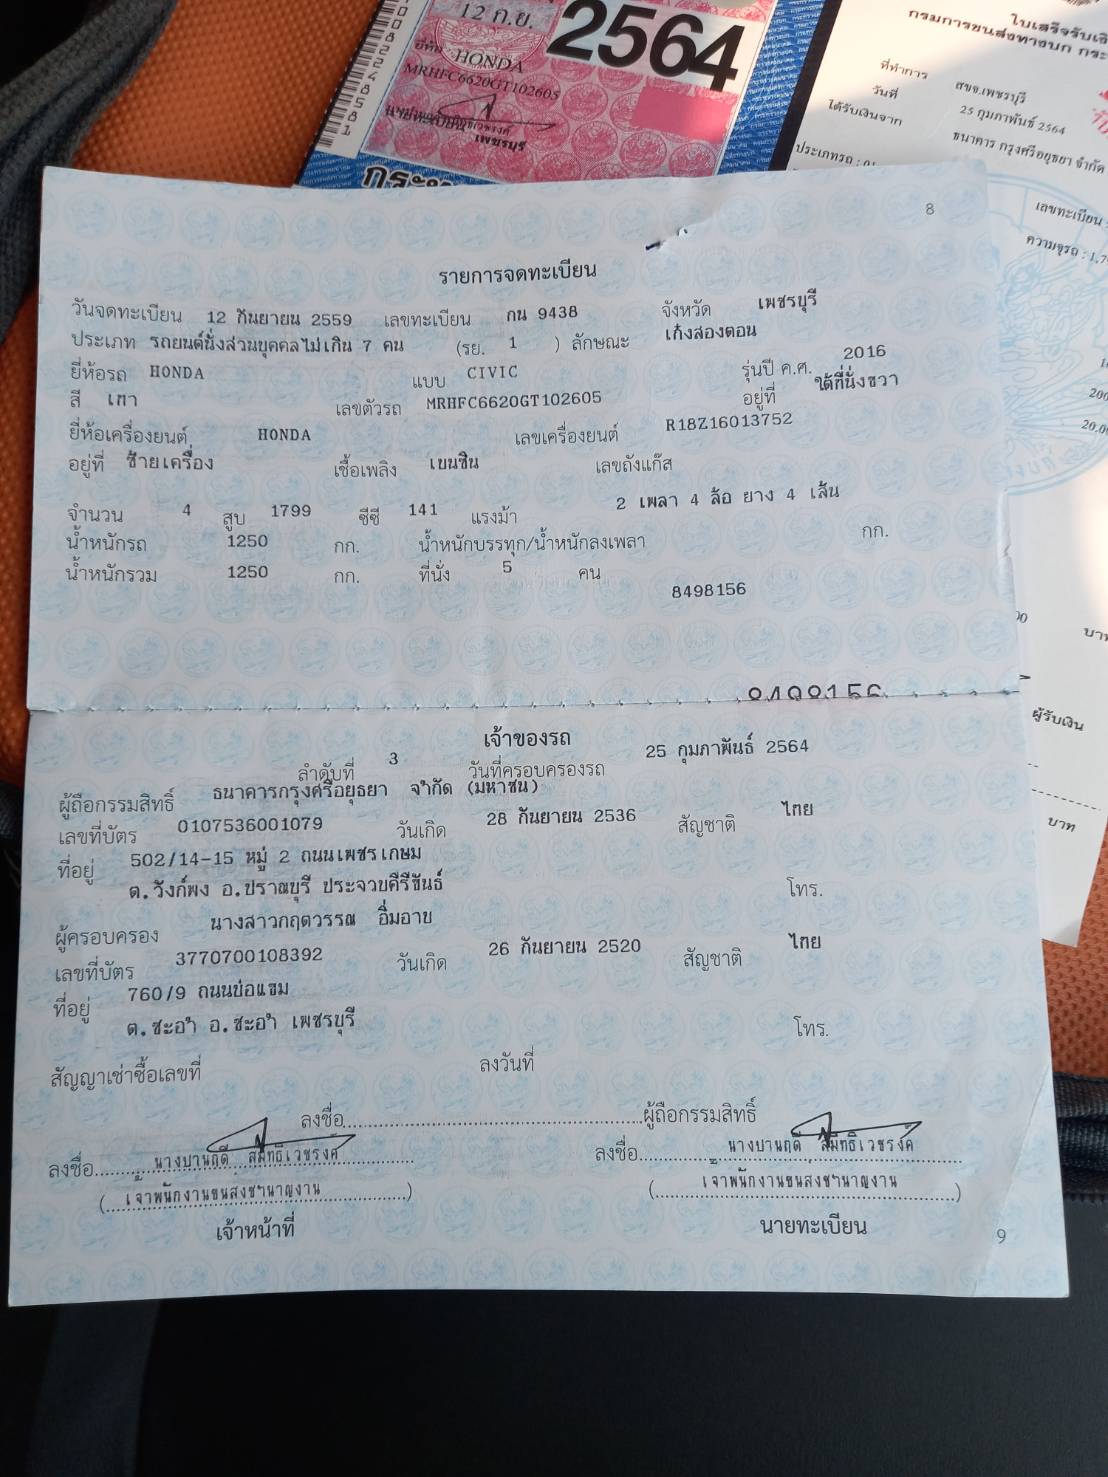 12 ก.ย. 2564
ยี่ห้อ HONDA
MRHFC6620GT102605
เพชรบุรี
ที่ทำการ สขจ.เพชรบุรี
วันที่ 25 กุมภาพันธ์ 2564
ได้รับเงินจาก ธนาคาร กรุงศรีอยุธยา จำกัด
ประเภทรถ :
เลขทะเบียน :
ความจุรถ :
8
รายการจดทะเบียน
วันจดทะเบียน 12 กันยายน 2559 เลขทะเบียน กน 9438 จังหวัด เพชรบุรี
ประเภท รถยนต์นั่งส่วนบุคคลไม่เกิน 7 คน (รย. 1 ) ลักษณะ เก๋งสองตอน
ยี่ห้อรถ HONDA แบบ CIVIC รุ่นปี ค.ศ. 2016
สี เทา เลขตัวรถ MRHFC6620GT102605 อยู่ที่ ใต้ที่นั่งขวา
ยี่ห้อเครื่องยนต์ HONDA เลขเครื่องยนต์ R18Z16013752
อยู่ที่ ซ้ายเครื่อง เชื้อเพลิง เบนซิน เลขถังแก๊ส
จำนวน 4 สูบ 1799 ซีซี 141 แรงม้า 2 เพลา 4 ล้อ ยาง 4 เส้น
น้ำหนักรถ 1250 กก. น้ำหนักบรรทุก/น้ำหนักลงเพลา กก.
น้ำหนักรวม 1250 กก. ที่นั่ง 5 คน
8498156
8498156
เจ้าของรถ
ลำดับที่ 3 วันที่ครอบครองรถ 25 กุมภาพันธ์ 2564
ผู้ถือกรรมสิทธิ์ ธนาคารกรุงศรีอยุธยา จำกัด (มหาชน)
เลขที่บัตร 0107536001079 วันเกิด 28 กันยายน 2536 สัญชาติ ไทย
ที่อยู่ 502/14-15 หมู่ 2 ถนนเพชรเกษม
ต.วังก์พง อ.ปราณบุรี ประจวบคีรีขันธ์ โทร.
ผู้ครอบครอง นางสาวกฤตวรรณ อิ่มอาบ
เลขที่บัตร 3770700108392 วันเกิด 26 กันยายน 2520 สัญชาติ ไทย
ที่อยู่ 760/9 ถนนบ่อแขม
ต.ชะอำ อ.ชะอำ เพชรบุรี โทร.
สัญญาเช่าซื้อเลขที่ ลงวันที่
ลงชื่อ ผู้ถือกรรมสิทธิ์
ลงชื่อ นางปานฤดี สมิทธิเวชรงค์ ลงชื่อ นางปานฤดี สมิทธิเวชรงค์
(เจ้าพนักงานขนส่งชำนาญงาน) (เจ้าพนักงานขนส่งชำนาญงาน)
เจ้าหน้าที่ นายทะเบียน
9
บาท
ผู้รับเงิน
บาท